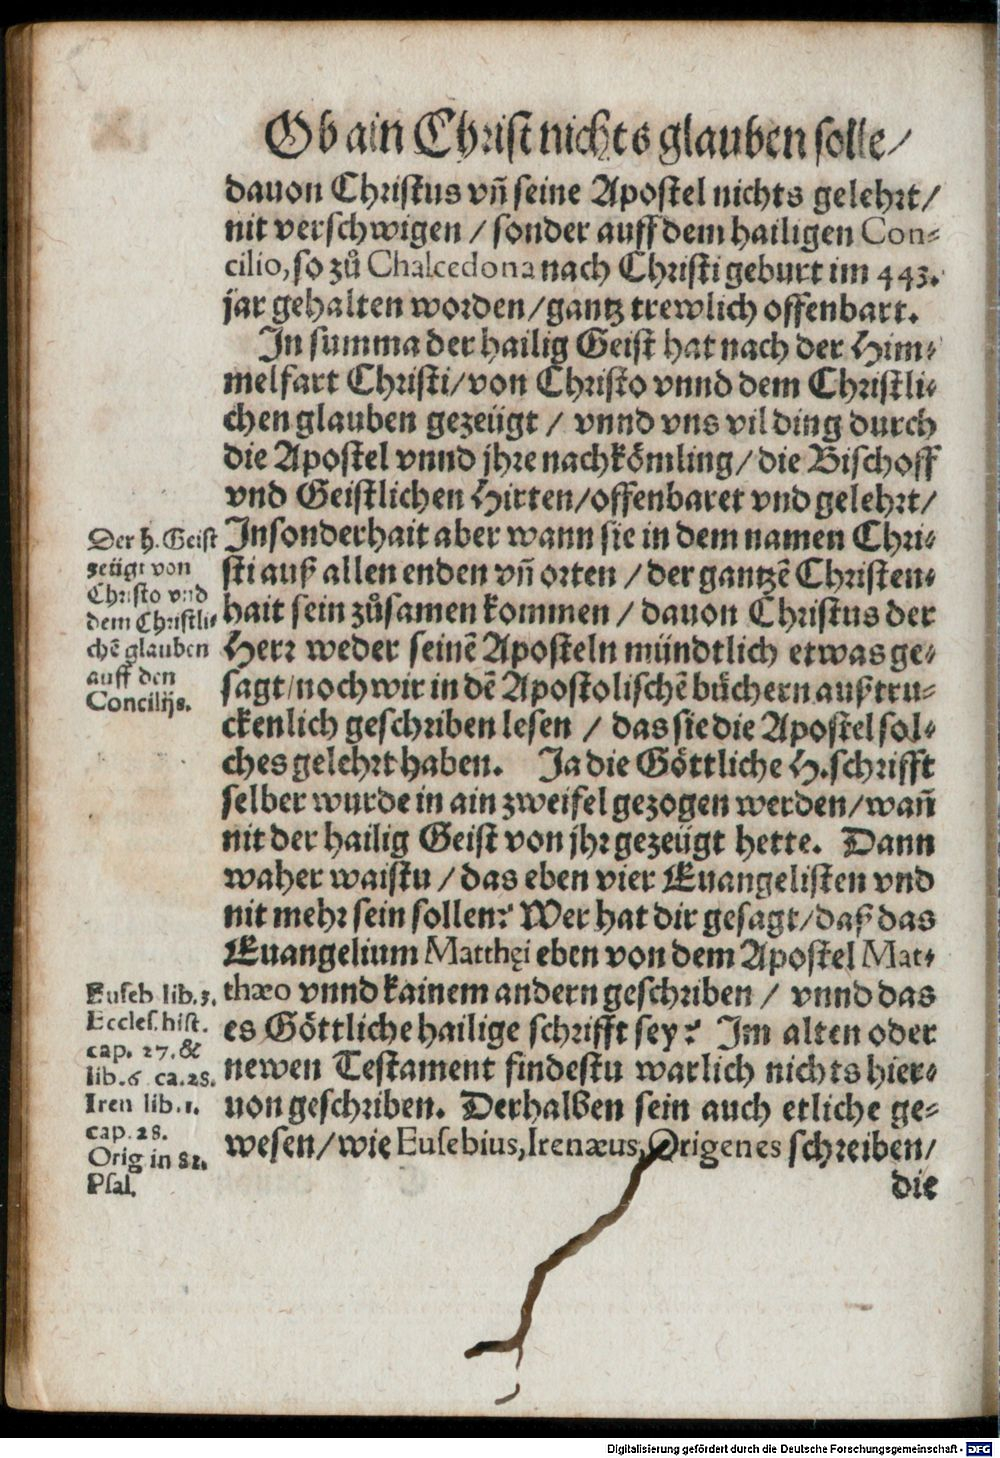 Ob ain Christ nichts glauben solle/
dauon Christus vñ seine Apostel nichts gelehrt/
nit verschwigen / sonder auff dem hailigen Con-
cilio, so zů Chalcedona nach Christi geburt im 443.
jar gehalten worden/gantz trewlich offenbart.
In summa der hailig Geist hat nach der Him-
melfart Christi/von Christo vnnd dem Christli-
chen glauben gezeügt / vnnd vns vil ding durch
die Apostel vnnd jhre nachkömling/die Bischoff
vnd Geistlichen Hirten/offenbaret vnd gelehrt/
Insonderhait aber wann sie in dem namen Chri-
sti auß allen enden vñ orten / der gantzẽ Christen-
hait sein zůsamen kommen / dauon Christus der
Herr weder seinẽ Aposteln mündtlich etwas ge-
sagt/noch wir in dẽ Apostolischẽ büchern außtru-
ckenlich geschriben lesen / das sie die Apostel sol-
ches gelehrt haben. Ja die Göttliche H.schrifft
selber wurde in ain zweifel gezogen werden/wañ
nit der hailig Geist von jhr gezeügt hette. Dann
waher waistu / das eben vier Euangelisten vnd
nit mehr sein sollen? Wer hat dir gesagt/daß das
Euangelium Matthęi eben von dem Apostel Mat-
thæo vnnd kainem andern geschriben / vnnd das
es Göttliche hailige schrifft sey? Im alten oder
newen Testament findestu warlich nichts hier-
uon geschriben. Derhalben sein auch etliche ge-
wesen/wie Eusebius, Irenæus, Origenes schreiben/
die
Der h. Geist
zeügt von
Christo vnd
dem Christli-
chẽ glauben
auff den
Concilijs.
Euseb lib.3.
Eccles. hist.
cap. 27. &
lib.6 ca.28.
Iren lib.1.
cap. 28.
Orig in 82.
Psal.
Digitalisierung gefördert durch die Deutsche Forschungsgemeinschaft - DFG